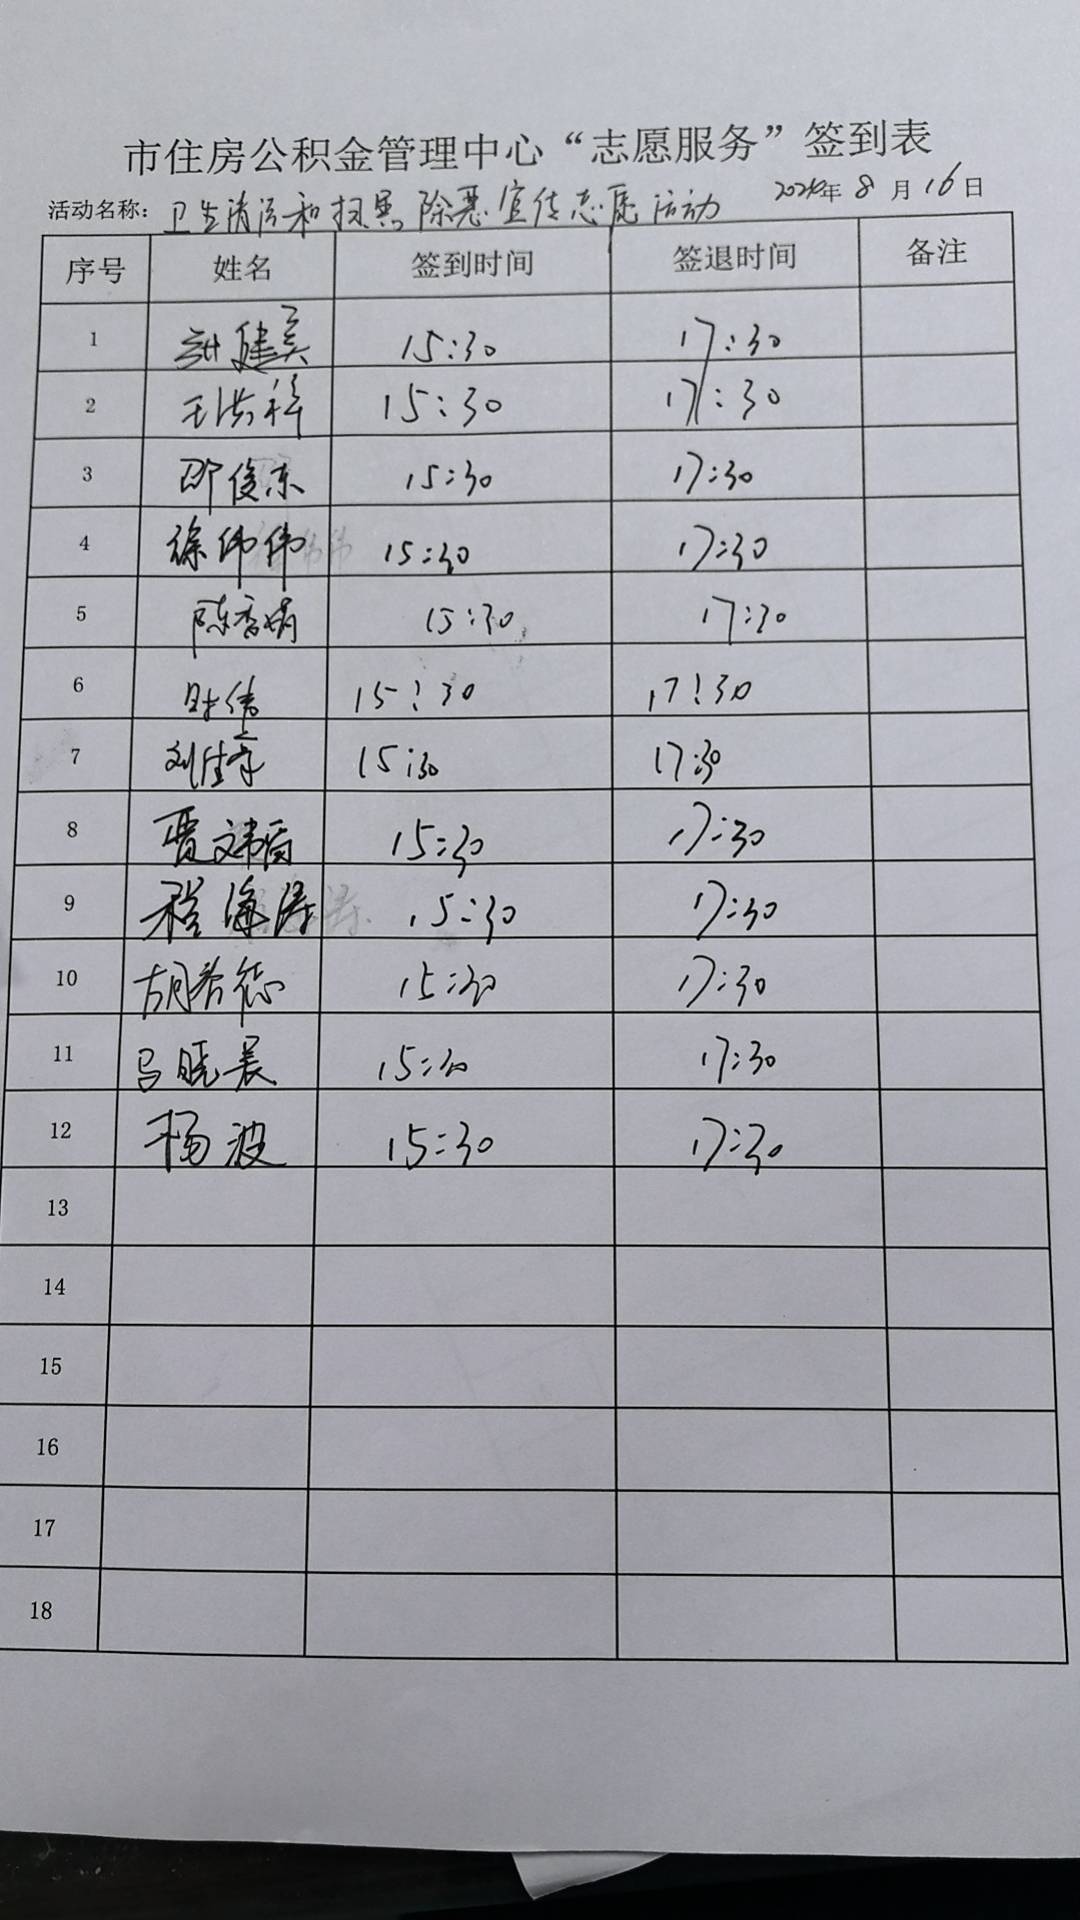 市住房公积金管理中心“志愿服务”签到表
活动名称: 卫生清洁和扫黑除恶宣传志愿活动 2024年8月16日
序号 姓名 签到时间 签退时间 备注
1 建英 15:30 17:30
2 王洪科 15:30 17:30
3 邵俊东 15:30 17:30
4 徐伟伟 15:30 17:30
5 陈香娟 15:30 17:30
6 时伟 15:30 17:30
7 刘 15:30 17:30
8 贾文 15:30 17:30
9 程海涛 15:30 17:30
10 胡希德 15:30 17:30
11 马晓晨 15:30 17:30
12 杨波 15:30 17:30
13
14
15
16
17
18